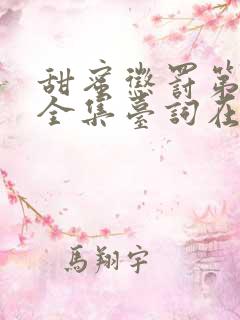 甜蜜懲罰第
全集臺詞在
馬翔宇